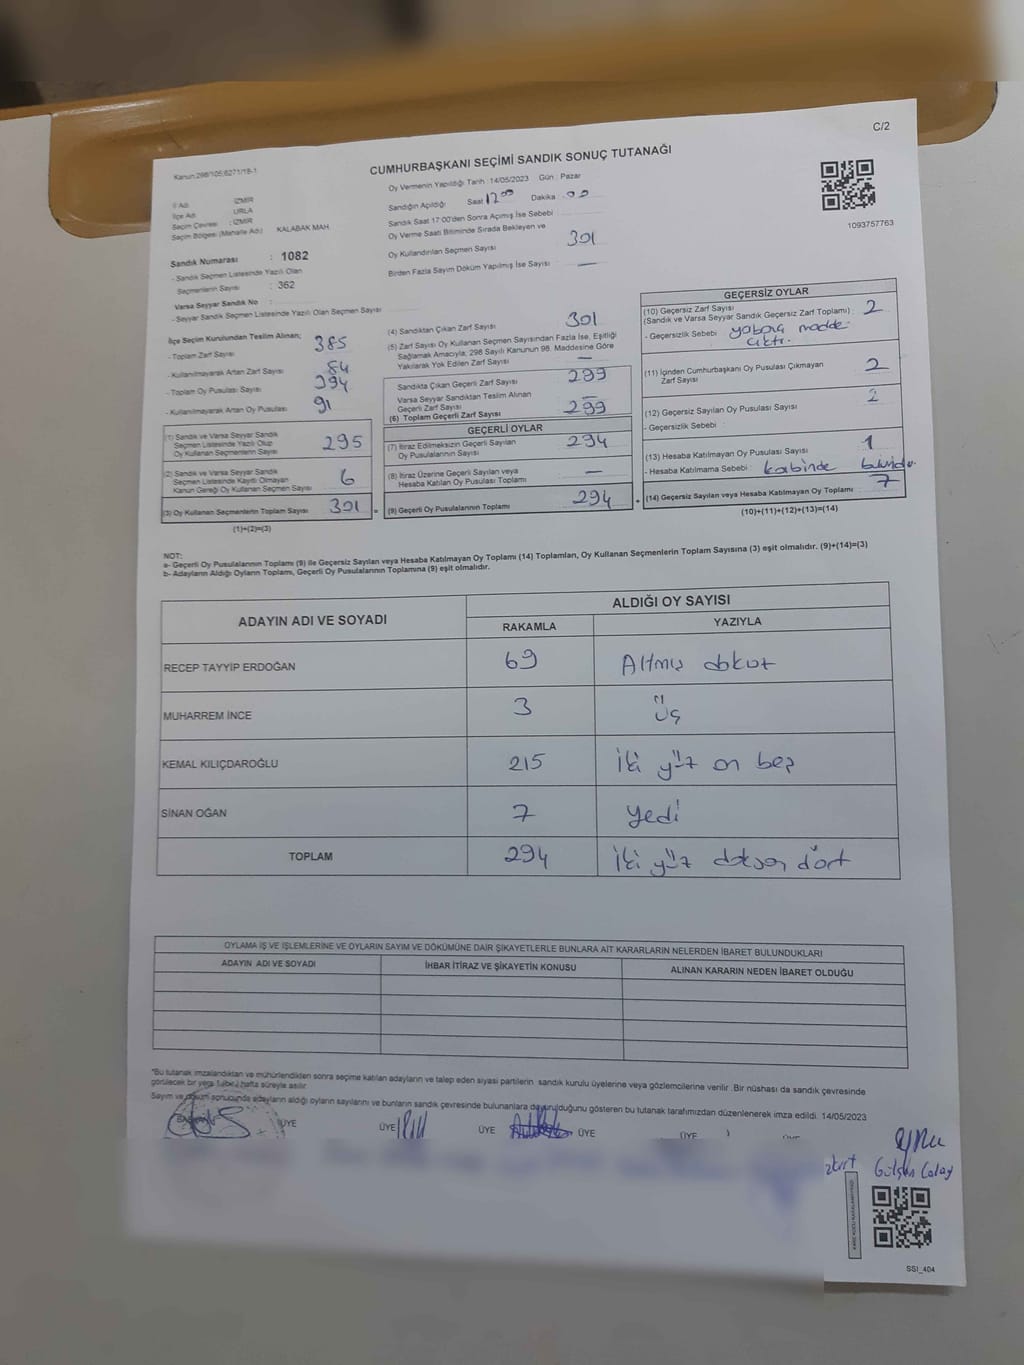 C/2
Kanun:298/105;6271/18-1
CUMHURBAŞKANI SEÇİMİ SANDIK SONUÇ TUTANAĞI
İl Adı : İZMİR
İlçe Adı : URLA
Seçim Çevresi : İZMİR
Seçim Bölgesi (Mahalle Adı) : KALABAK MAH.
Sandık Numarası : 1082
- Sandık Seçmen Listesinde Yazılı Olan
Seçmenlerin Sayısı : 362
Varsa Seyyar Sandık No :
- Seyyar Sandık Seçmen Listesinde Yazılı Olan Seçmen Sayısı
Oy Vermenin Yapıldığı Tarih : 14/05/2023 Gün : Pazar
Sandığın Açıldığı Saat 17 00 Dakika . 00
Sandık Saat 17:00'den Sonra Açımış İse Sebebi
Oy Verme Saati Bitiminde Sırada Bekleyen ve
Oy Kullandırılan Seçmen Sayısı 301
Birden Fazla Sayım Döküm Yapılmış İse Sayısı —
1093757763
İlçe Seçim Kurulundan Teslim Alınan;
- Toplam Zarf Sayısı 385
- Kullanılmayarak Artan Zarf Sayısı 84
- Toplam Oy Pusulası Sayısı 394
- Kullanılmayarak Artan Oy Pusulası 91
(1) Sandık ve Varsa Seyyar Sandık
Seçmen Listesinde Yazılı Olup
Oy Kullanan Seçmenlerin Sayısı 295
(2) Sandık ve Varsa Seyyar Sandık
Seçmen Listesinde Kayıtlı Olmayan
Kanun Gereği Oy Kullanan Seçmen Sayısı 6
(3) Oy Kullanan Seçmenlerin Toplam Sayısı 301
(1)+(2)=(3)
(4) Sandıktan Çıkan Zarf Sayısı 301
(5) Zarf Sayısı Oy Kullanan Seçmen Sayısından Fazla İse, Eşitliği
Sağlamak Amacıyla, 298 Sayılı Kanunun 98. Maddesine Göre
Yakılarak Yok Edilen Zarf Sayısı —
Sandıkta Çıkan Geçerli Zarf Sayısı 299
Varsa Seyyar Sandıktan Teslim Alınan
Geçerli Zarf Sayısı —
(6) Toplam Geçerli Zarf Sayısı 299
GEÇERLİ OYLAR
(7) İtiraz Edilmeksizin Geçerli Sayılan
Oy Pusulasının Sayısı 294
(8) İtiraz Üzerine Geçerli Sayılan veya
Hesaba Katılan Oy Pusulası Toplamı —
(9) Geçerli Oy Pusulalarının Toplamı 294
GEÇERSİZ OYLAR
(10) Geçersiz Zarf Sayısı
(Sandık ve Varsa Seyyar Sandık Geçersiz Zarf Toplamı) 2
- Geçersizlik Sebebi : yabancı madde
çıktı.
(11) İçinden Cumhurbaşkanı Oy Pusulası Çıkmayan
Zarf Sayısı 2
(12) Geçersiz Sayılan Oy Pusulası Sayısı 2
- Geçersizlik Sebebi :
(13) Hesaba Katılmayan Oy Pusulası Sayısı 1
- Hesaba Katılmama Sebebi : kabinde bulundu.
(14) Geçersiz Sayılan veya Hesaba Katılmayan Oy Toplamı 7
(10)+(11)+(12)+(13)=(14)
NOT:
a- Geçerli Oy Pusulalarının Toplamı (9) ile Geçersiz Sayılan veya Hesaba Katılmayan Oy Toplamı (14) Toplamları, Oy Kullanan Seçmenlerin Toplam Sayısına (3) eşit olmalıdır. (9)+(14)=(3)
b- Adayların Aldığı Oyların Toplamı, Geçerli Oy Pusulalarının Toplamına (9) eşit olmalıdır.
ADAYIN ADI VE SOYADI ALDIĞI OY SAYISI
RAKAMLA YAZIYLA
RECEP TAYYİP ERDOĞAN 69 Altmış dokuz
MUHARREM İNCE 3 Üç
KEMAL KILIÇDAROĞLU 215 İki yüz on beş
SİNAN OĞAN 7 Yedi
TOPLAM 294 İki yüz doksan dört
OYLAMA İŞ VE İŞLEMLERİNE VE OYLARIN SAYIM VE DÖKÜMÜNE DAİR ŞİKAYETLERLE BUNLARA AİT KARARLARIN NELERDEN İBARET BULUNDUKLARI
ADAYIN ADI VE SOYADI İHBAR İTİRAZ VE ŞİKAYETİN KONUSU ALINAN KARARIN NEDEN İBARET OLDUĞU
*Bu tutanak imzalandıktan ve mühürlendikten sonra seçime katılan adayların ve talep eden siyasi partilerin sandık kurulu üyelerine veya gözlemcilerine verilir. Bir nüshası da sandık çevresinde
görülecek bir yere bir hafta süreyle asılır.
Sayım ve döküm sonucunda adayların aldığı oyların sayılarını ve bunların sandık çevresinde bulunanlara duyurulduğunu gösteren bu tutanak tarafımızdan düzenlenerek imza edildi. 14/05/2023
BAŞKAN ÜYE ÜYE ÜYE ÜYE ÜYE ÜYE
Gülşen
SSI_404